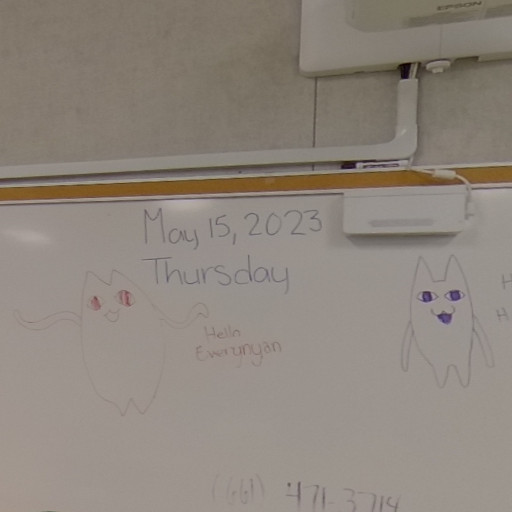 EPSON
May 15, 2023
Thursday
Hello
Everynyan
H
H
(661) 471-3714